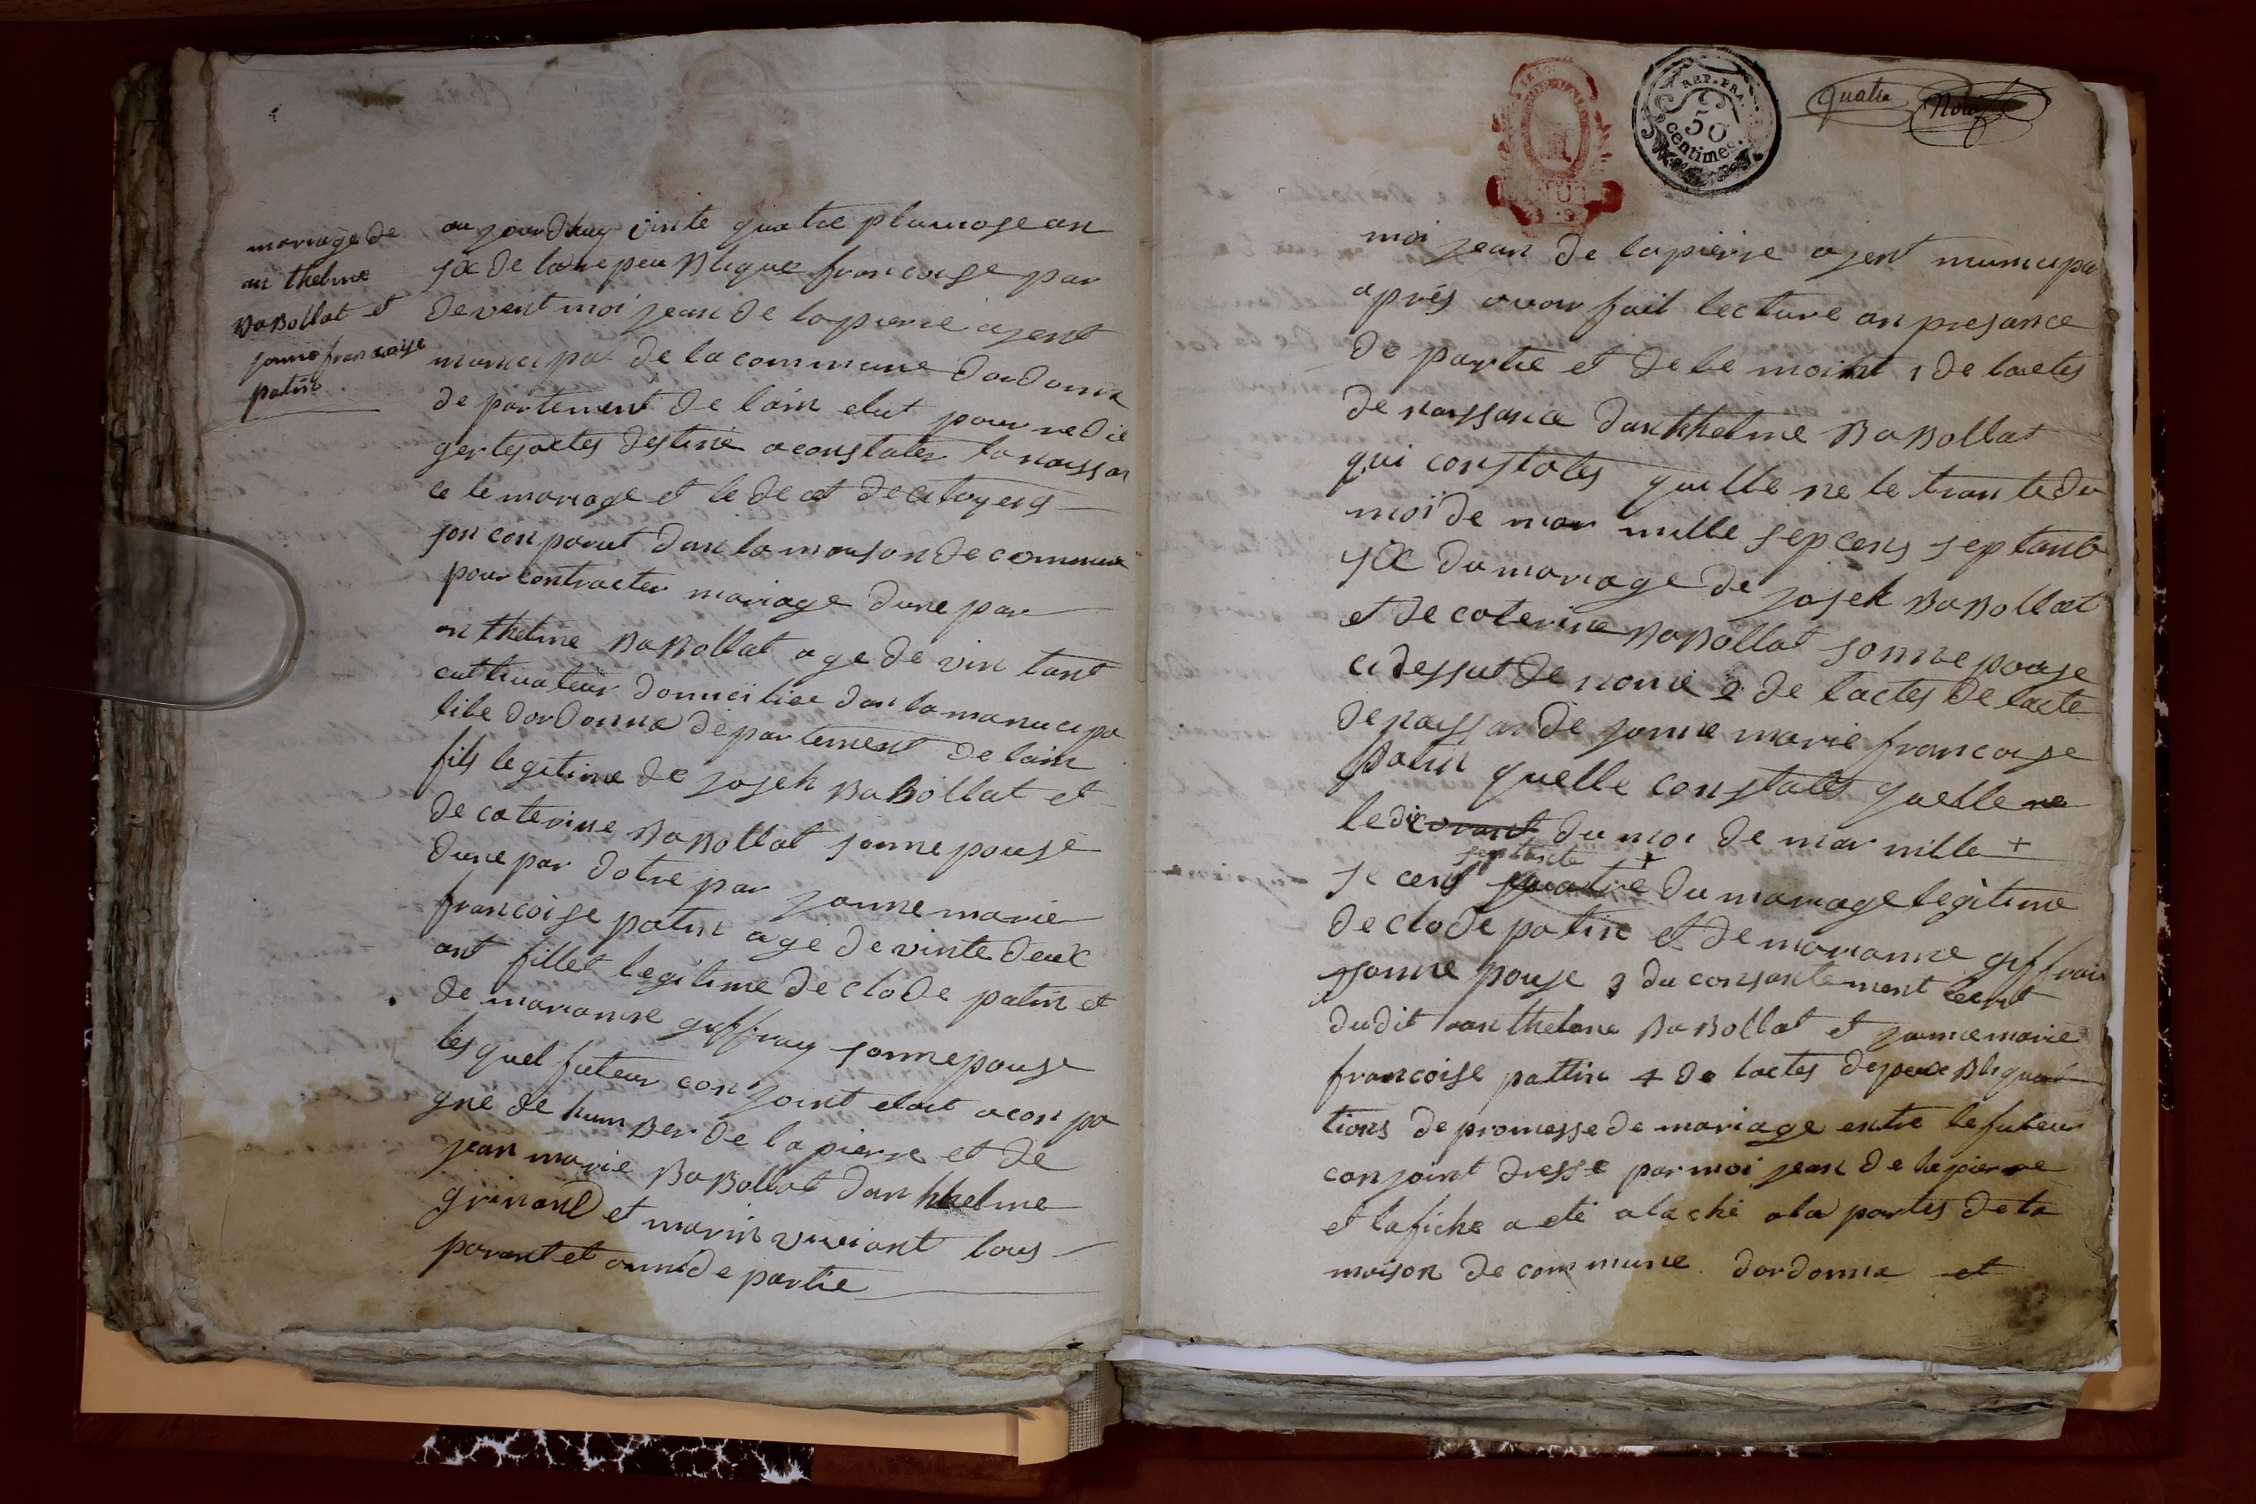 mariage de
an thelme
BaBollat et
janne francoise
patin
au jourd huy vinte quatre pluviose an
six de la repeu Blique francoise par
devent moi jean de lapierre ajent
municipal de la commune dordonna
departement de lain elut pour redi
ger les actes destiné a constater la naissan
ce le mariage et le decet de citoyens
son conparut dan la maison de commune
pour contracter mariage dune par
an thelme BaBollat age de vin tant
cultivateur domicilier dan la manucipa
lite dordonna departement de lain
fils legitime de josek BaBollat et
de caterine BaBollat sonnepouse
dune par dotre par janne marie
francoise patin age de vinte deux
ant fillet legitime de clode patin et
de marianne guffray sonnepouse
les quel futeur conjoint etoit acon pa
gné de humBer de lapierre et de
jean marie BaBollat dankhelme
grinand et marin viviant tous
parent et ami de partie
REP. FRA.
50
centimes.
quatre
moi jean de lapierre ajent municipa
aprés avoir fait lecture an presance
de partie et de te moint 1 de lactes
de naissance dankhelme BaBollat
qui constates quille ne le trante du
moi de mar mille sepcens septante
six du mariage de josek BaBollat
et de caterine BaBollat sonnepouse
ci dessut de nomé 2 de lactes de lacte
de naissan de janne marie francoise
patin quelle constates quelle ne
le dix du moi de mar mille +
septante +
se cens quatre du mariage legitime
de clode patin et de marianne guffrai
sonne pouse 3 du consantement
dudit anthelme BaBollat et janne marie
francoise pattin 4 de lactes de peu Bliqua
tions de promesse de mariage entre le futeur
conjoint dresse par moi jean de lapierre
et lafiche a eté ataché a la portes de la
maison de commune dordonna et